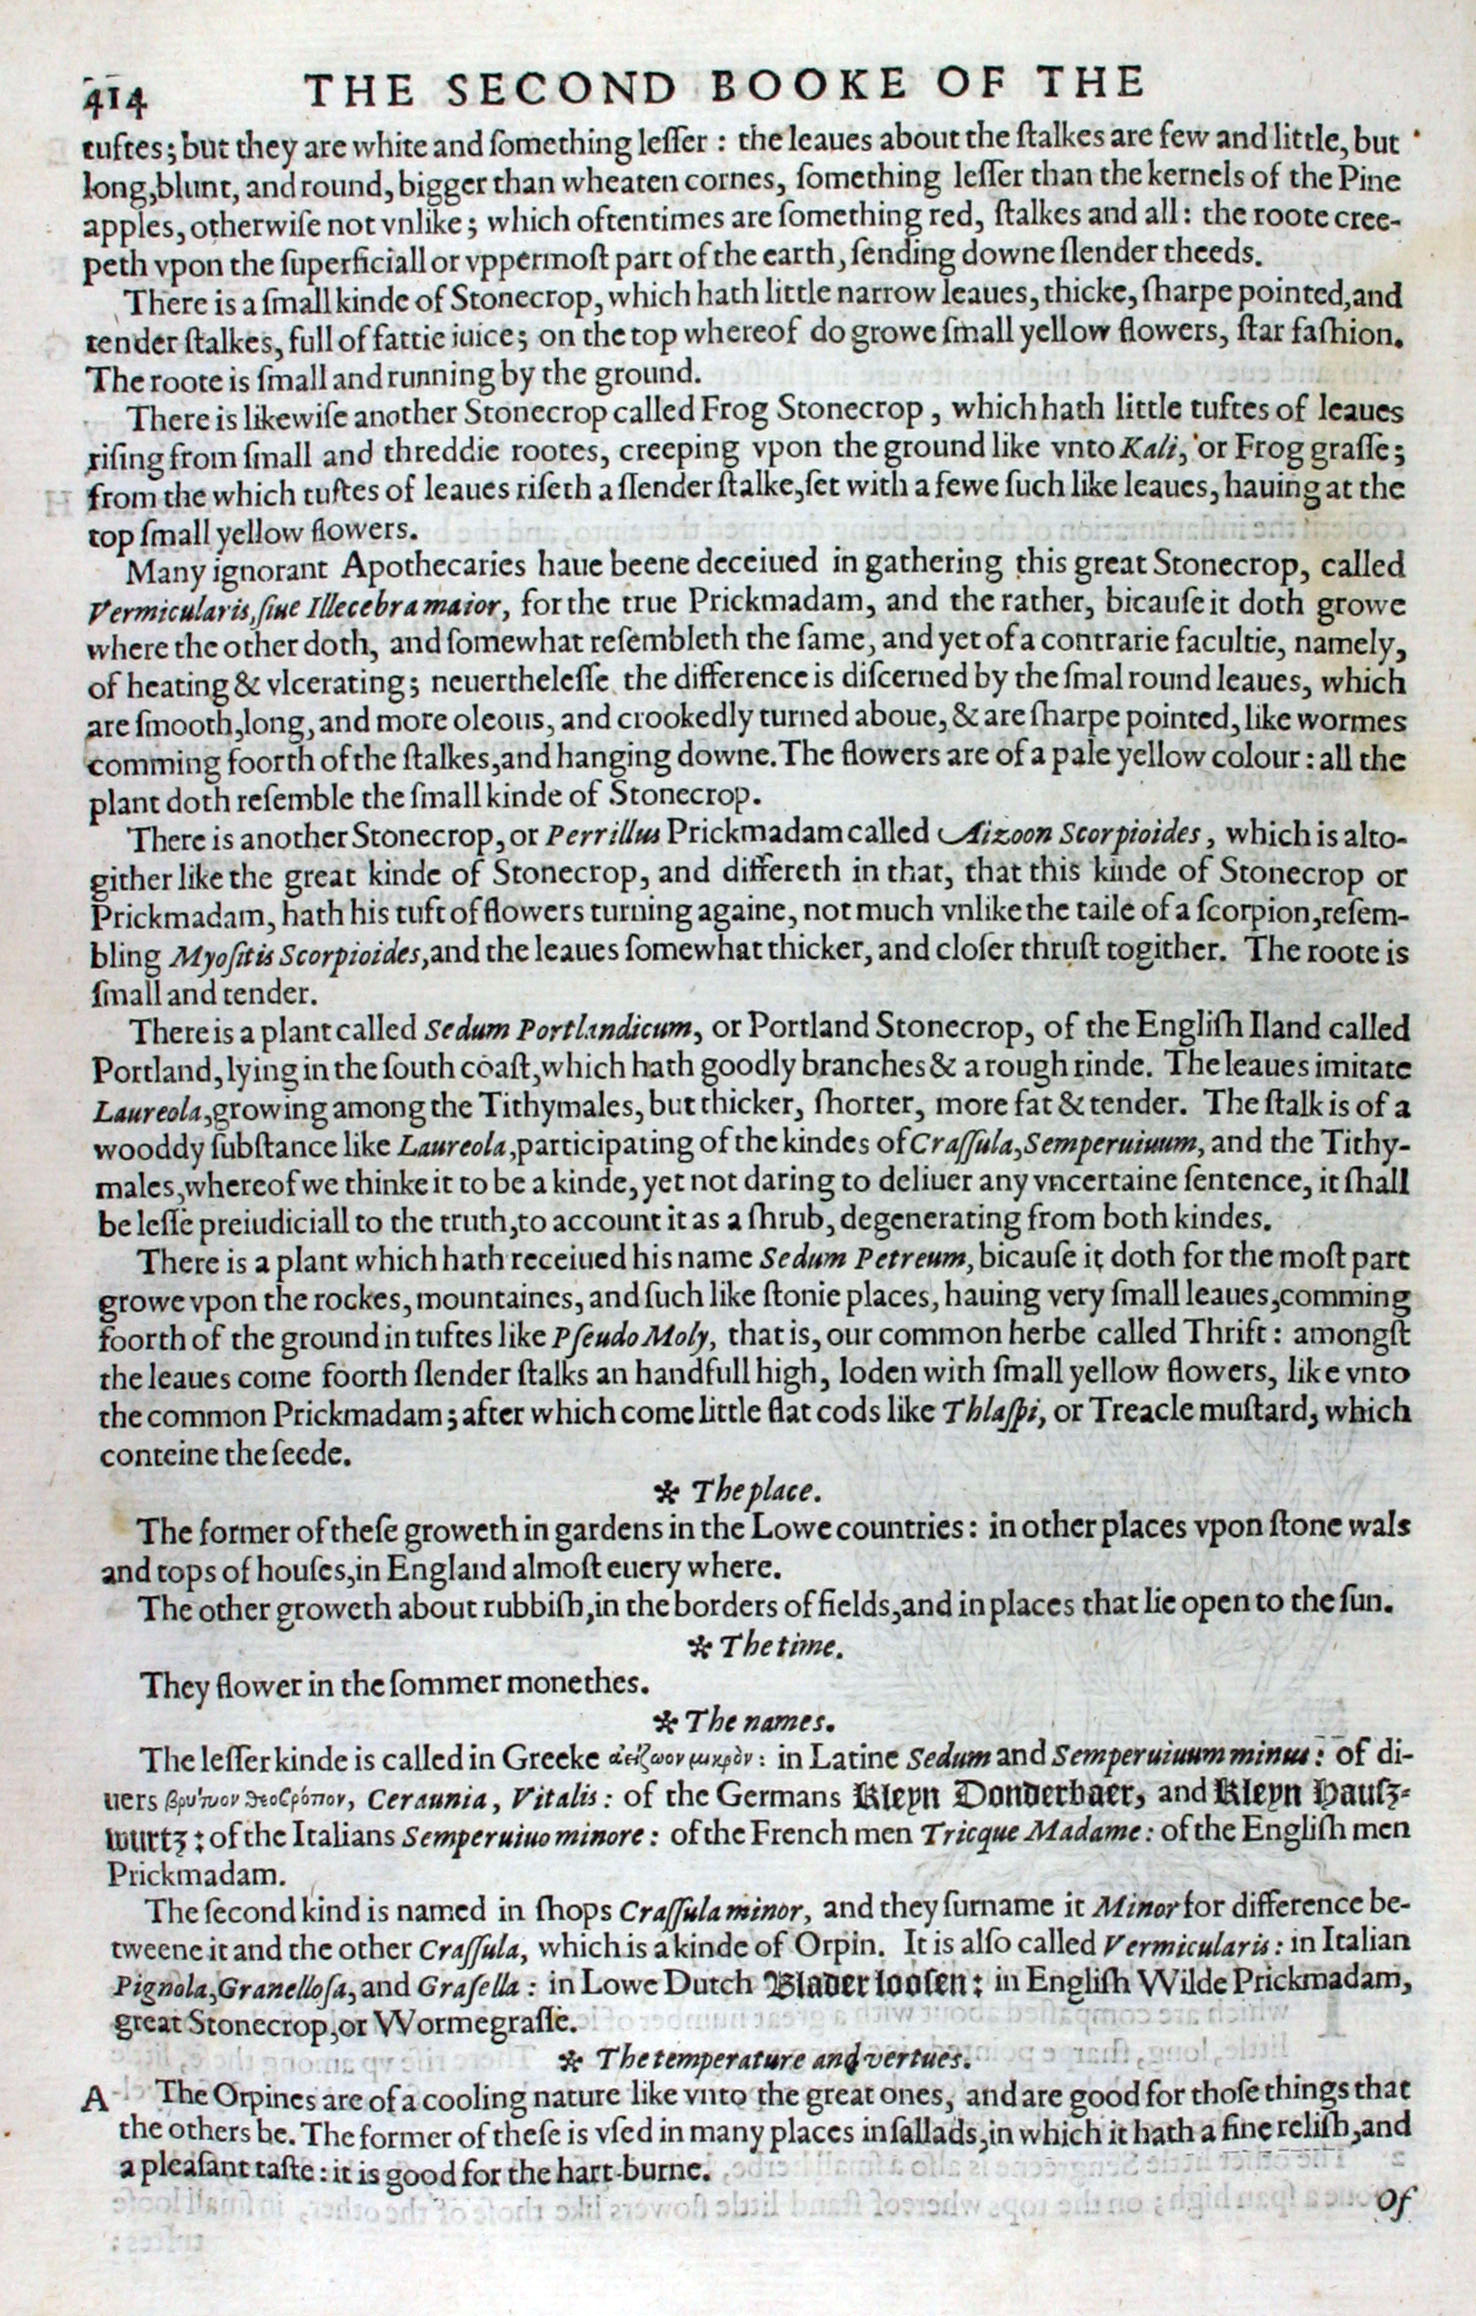 414 THE SECOND BOOKE OF THE
tuftes; but they are white and ſomething leſſer : the leaues about the ſtalkes are few and little, but
long, blunt, and round, bigger than wheaten cornes, ſomething leſſer than the kernels of the Pine
apples, otherwiſe not vnlike; which oftentimes are ſomething red, ſtalkes and all : the roote cree-
peth vpon the ſuperficiall or vppermoſt part of the earth, ſending downe ſlender theeds.
There is a ſmall kinde of Stonecrop, which hath little narrow leaues, thicke, ſharpe pointed, and
tender ſtalkes, full of fattie iuice; on the top whereof do growe ſmall yellow flowers, ſtar faſhion.
The roote is ſmall and running by the ground.
There is likewiſe another Stonecrop called Frog Stonecrop, which hath little tuftes of leaues
riſing from ſmall and threddie rootes, creeping vpon the ground like vnto Kali, or Frog graſſe;
from the which tuftes of leaues riſeth a ſlender ſtalke, ſet with a fewe ſuch like leaues, hauing at the
top ſmall yellow flowers.
Many ignorant Apothecaries haue beene deceiued in gathering this great Stonecrop, called
Vermicularis, ſiue Illecebra maior, for the true Prickmadam, and the rather, bicauſe it doth growe
where the other doth, and ſomewhat reſembleth the ſame, and yet of a contrarie facultie, namely,
of heating & vlcerating; neuertheleſſe the difference is diſcerned by the ſmal round leaues, which
are ſmooth, long, and more oleous, and crookedly turned aboue, & are ſharpe pointed, like wormes
comming foorth of the ſtalkes, and hanging downe. The flowers are of a pale yellow colour : all the
plant doth reſemble the ſmall kinde of Stonecrop.
There is another Stonecrop, or Perrillus Prickmadam called Aizoon Scorpioides, which is alto-
gither like the great kinde of Stonecrop, and differeth in that, that this kinde of Stonecrop or
Prickmadam, hath his tuft of flowers turning againe, not much vnlike the taile of a ſcorpion, reſem-
bling Myoſitis Scorpioides, and the leaues ſomewhat thicker, and cloſer thruſt togither. The roote is
ſmall and tender.
There is a plant called Sedum Portlandicum, or Portland Stonecrop, of the Engliſh Iland called
Portland, lying in the ſouth coaſt, which hath goodly branches & a rough rinde. The leaues imitate
Laureola, growing among the Tithymales, but thicker, ſhorter, more fat & tender. The ſtalk is of a
wooddy ſubſtance like Laureola, participating of the kindes of Craſſula, Semperuiuum, and the Tithy-
males, whereof we thinke it to be a kinde, yet not daring to deliuer any vncertaine ſentence, it ſhall
be leſſe preiudiciall to the truth, to account it as a ſhrub, degenerating from both kindes.
There is a plant which hath receiued his name Sedum Petreum, bicauſe it doth for the moſt part
growe vpon the rockes, mountaines, and ſuch like ſtonie places, hauing very ſmall leaues, comming
foorth of the ground in tuftes like Pſeudo Moly, that is, our common herbe called Thrift : amongſt
the leaues come foorth ſlender ſtalks an handfull high, loden with ſmall yellow flowers, like vnto
the common Prickmadam; after which come little flat cods like Thlaſpi, or Treacle muſtard, which
conteine the ſeede.
✻ The place.
The former of theſe groweth in gardens in the Lowe countries : in other places vpon ſtone wals
and tops of houſes, in England almoſt euery where.
The other groweth about rubbiſh, in the borders of fields, and in places that lie open to the ſun.
✻ The time.
They flower in the ſommer monethes.
✻ The names.
The leſſer kinde is called in Greeke ἀείζωον μικρὸν : in Latine Sedum and Semperuiuum minus : of di-
uers Ceraunia, Vitalis : of the Germans Kleyn Donderbaer, and Kleyn Hauſz-
wurtz : of the Italians Semperuiuo minore : of the French men Tricque Madame : of the Engliſh men
Prickmadam.
The ſecond kind is named in ſhops Craſſula minor, and they ſurname it Minor for difference be-
tweene it and the other Craſſula, which is a kinde of Orpin. It is alſo called Vermicularis : in Italian
Pignola, Granelloſa, and Graſella : in Lowe Dutch Blader looſen : in Engliſh Wilde Prickmadam,
great Stonecrop, or Wormegraſſe.
✻ The temperature and vertues.
A The Orpines are of a cooling nature like vnto the great ones, and are good for thoſe things that
the others be. The former of theſe is vſed in many places in ſallads, in which it hath a fine reliſh, and
a pleaſant taſte : it is good for the hart-burne.
Of